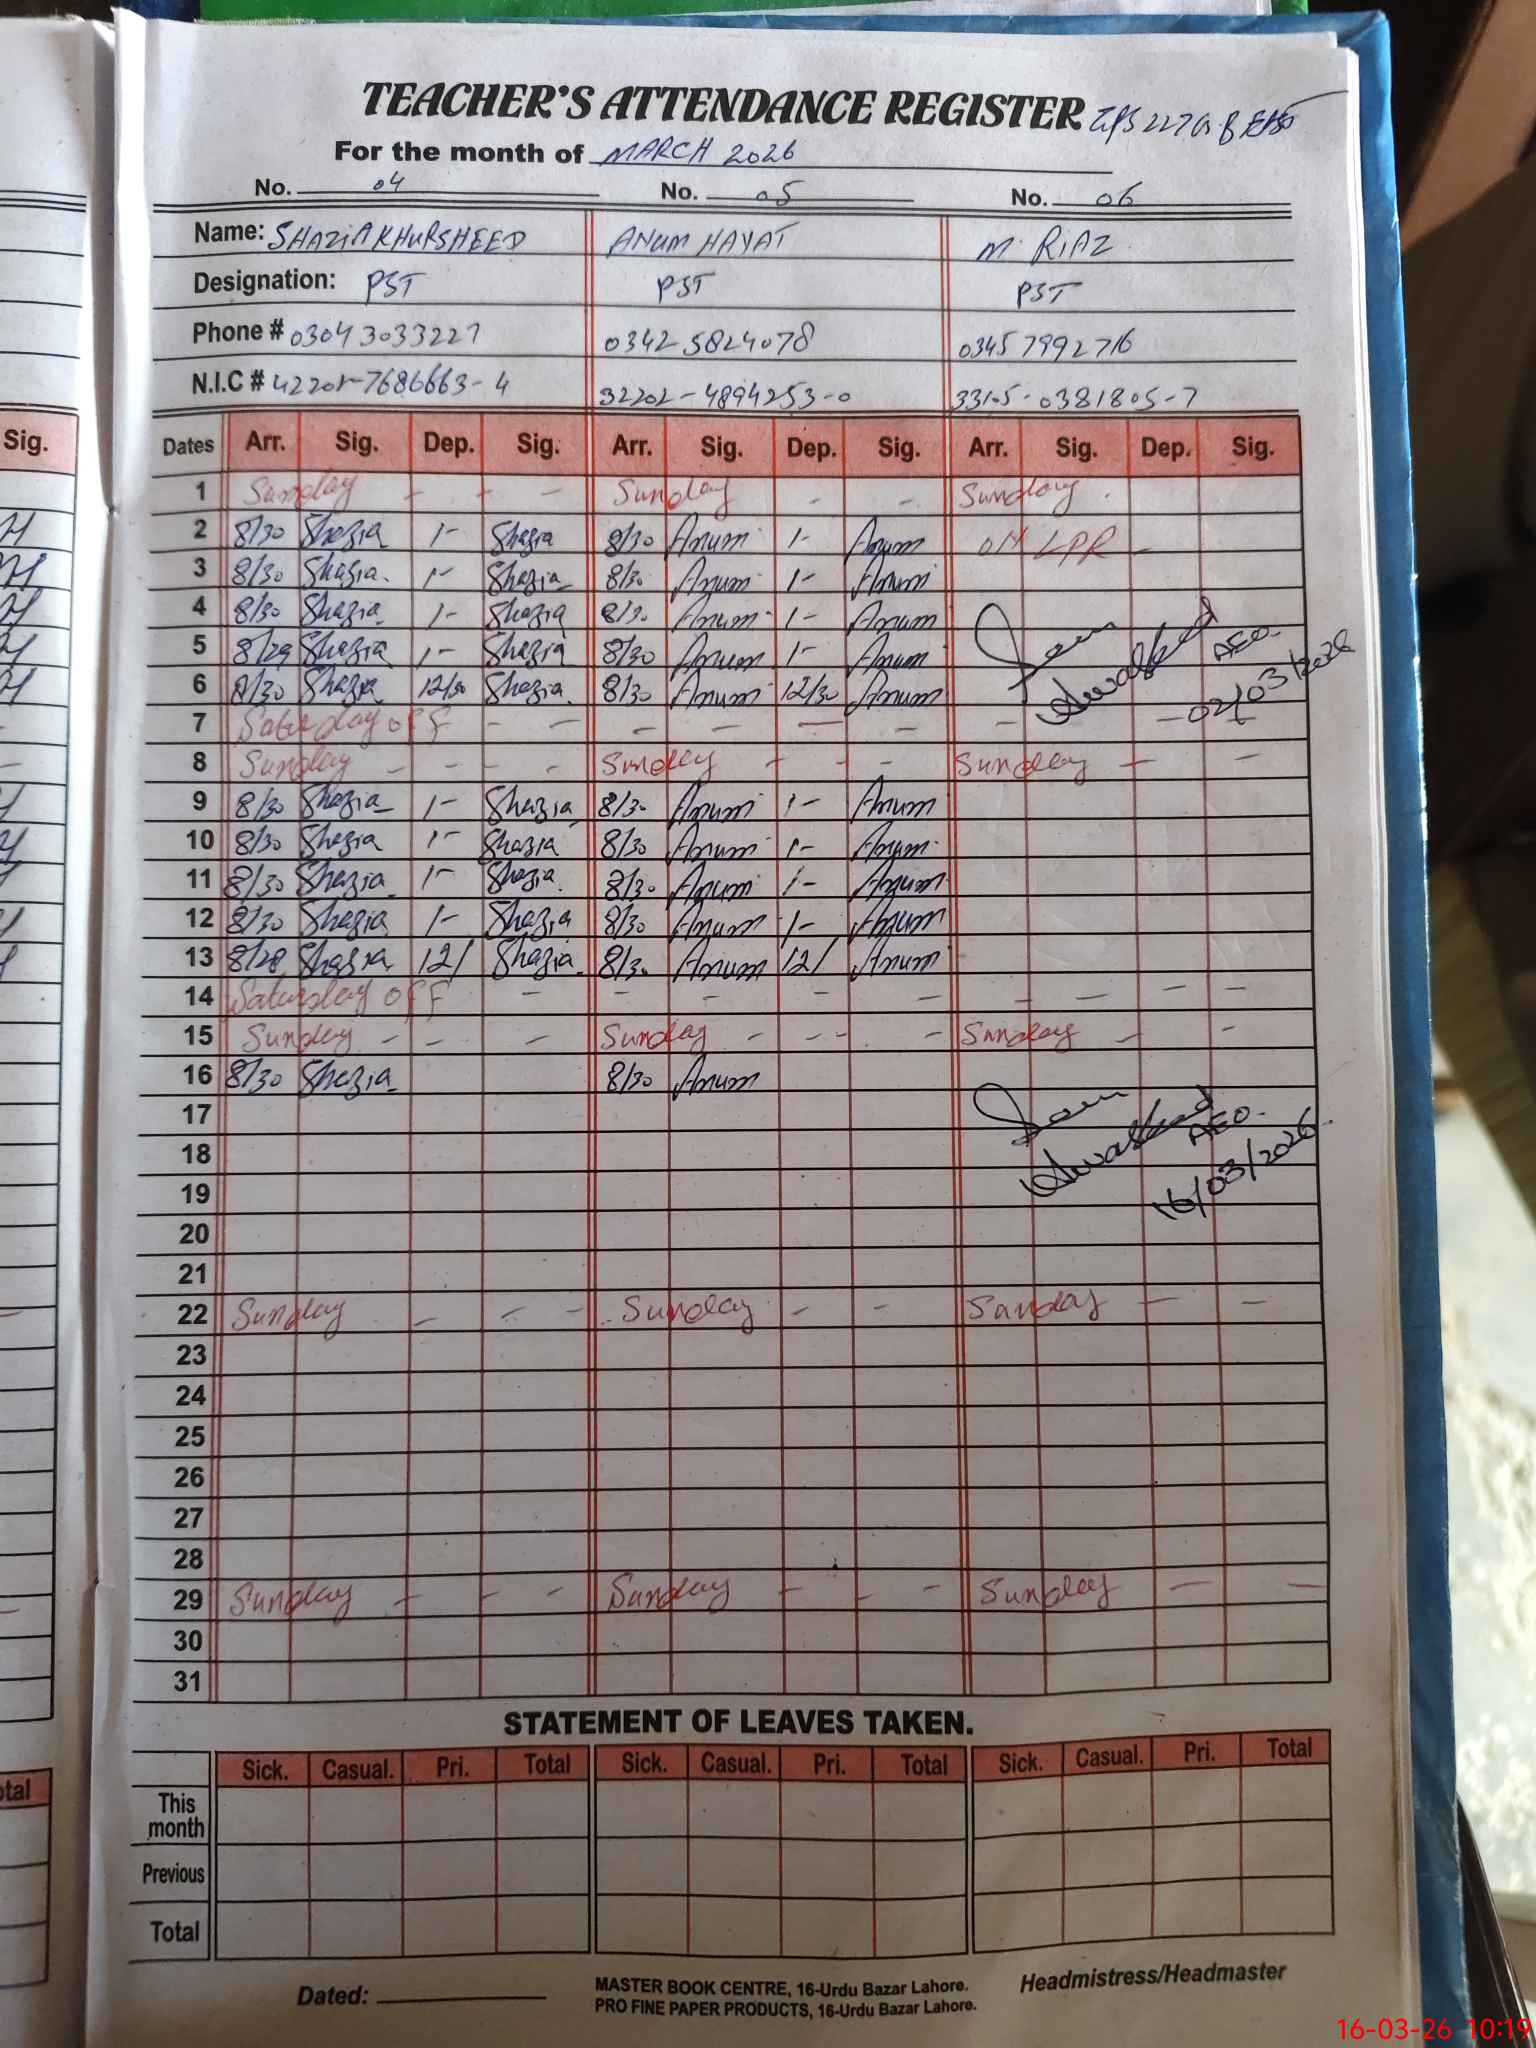 TEACHER'S ATTENDANCE REGISTER
For the month of MARCH 2026
No. 04 No. 05 No. 06
Name: SHAZIA KHURSHEED ANUM HAYAT M. RIAZ
Designation: PST PST PST
Phone # 0304 3033227 0342 5824078 0345 7992716
N.I.C # 42201-7686663-4 32202-4894253-0 33105-0381805-7
Sig. Dates Arr. Sig. Dep. Sig. Arr. Sig. Dep. Sig. Arr. Sig. Dep. Sig.
1 Sunday - - - Sunday - - Sunday
2 8/30 Shazia 1- Shazia 8/30 Anum 1- Anum ON LPR -
3 8/30 Shazia 1- Shazia 8/30 Anum 1- Anum
4 8/30 Shazia 1- Shazia 8/30 Anum 1- Anum
5 8/29 Shazia 1- Shazia 8/30 Anum 1- Anum AEO
6 8/30 Shazia 12/30 Shazia 8/30 Anum 12/30 Anum 02/03/2026
7 Saturday off - - - - - - - -
8 Sunday - - - - Sunday - - - Sunday - -
9 8/30 Shazia 1- Shazia 8/30 Anum 1- Anum
10 8/30 Shazia 1- Shazia 8/30 Anum 1- Anum
11 8/30 Shazia 1- Shazia 8/30 Anum 1- Anum
12 8/30 Shazia 1- Shazia 8/30 Anum 1- Anum
13 8/28 Shazia 12/ Shazia 8/30 Anum 12/ Anum
14 Saturday off - - - - - - - - -
15 Sunday - - - Sunday - - - - Sunday - -
16 8/30 Shazia 8/30 Anum
17 AEO
18
19 16/03/2026
20
21
22 Sunday - - - Sunday - - Sunday - -
23
24
25
26
27
28
29 Sunday - - - Sunday - - - Sunday - -
30
31
STATEMENT OF LEAVES TAKEN.
Sick. Casual. Pri. Total Sick. Casual. Pri. Total Sick. Casual. Pri. Total
This
month
Previous
Total
Dated:
MASTER BOOK CENTRE, 16-Urdu Bazar Lahore.
PRO FINE PAPER PRODUCTS, 16-Urdu Bazar Lahore.
Headmistress/Headmaster
16-03-26 10:19